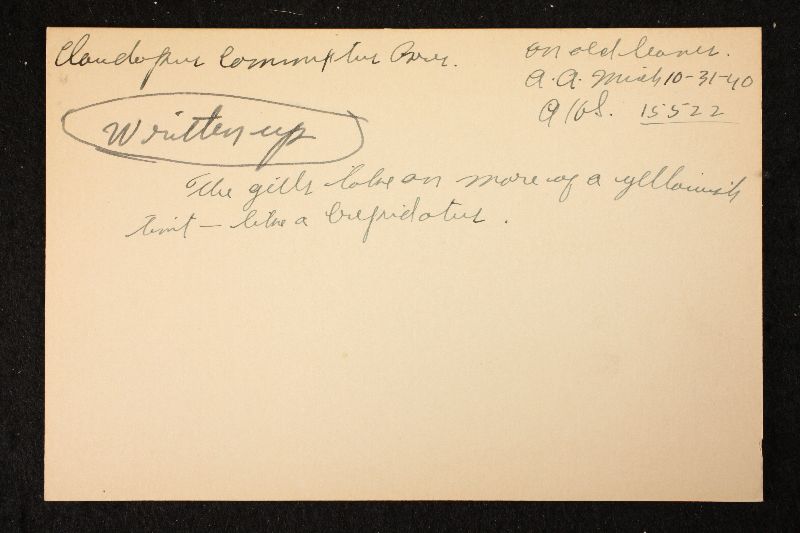 Claudopus commixtus Bres.
on old leaves.
A. A. Mich 10-31-40
AHS. 15522
Written up
The gills take on more of a yellowish
tint — like a Crepidotus.